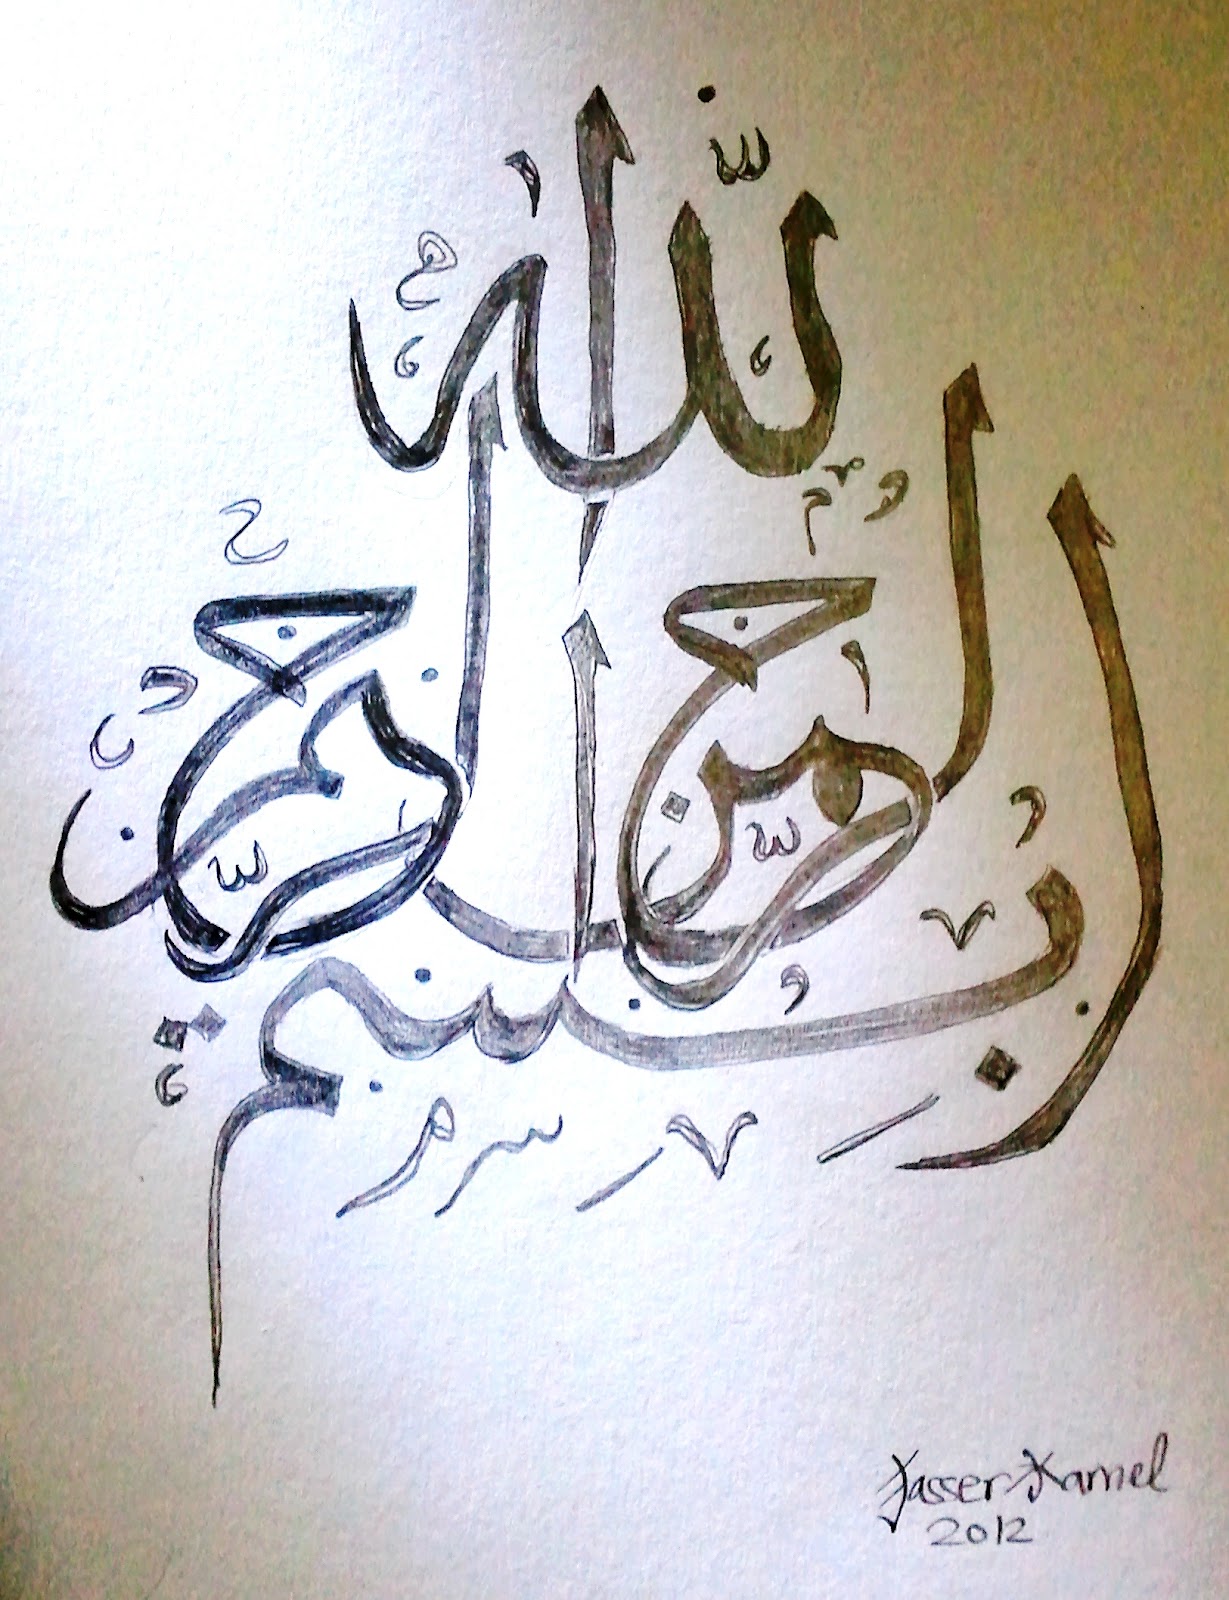 بسم الله الرحمن الرحيم
Yasser Kamel
2012